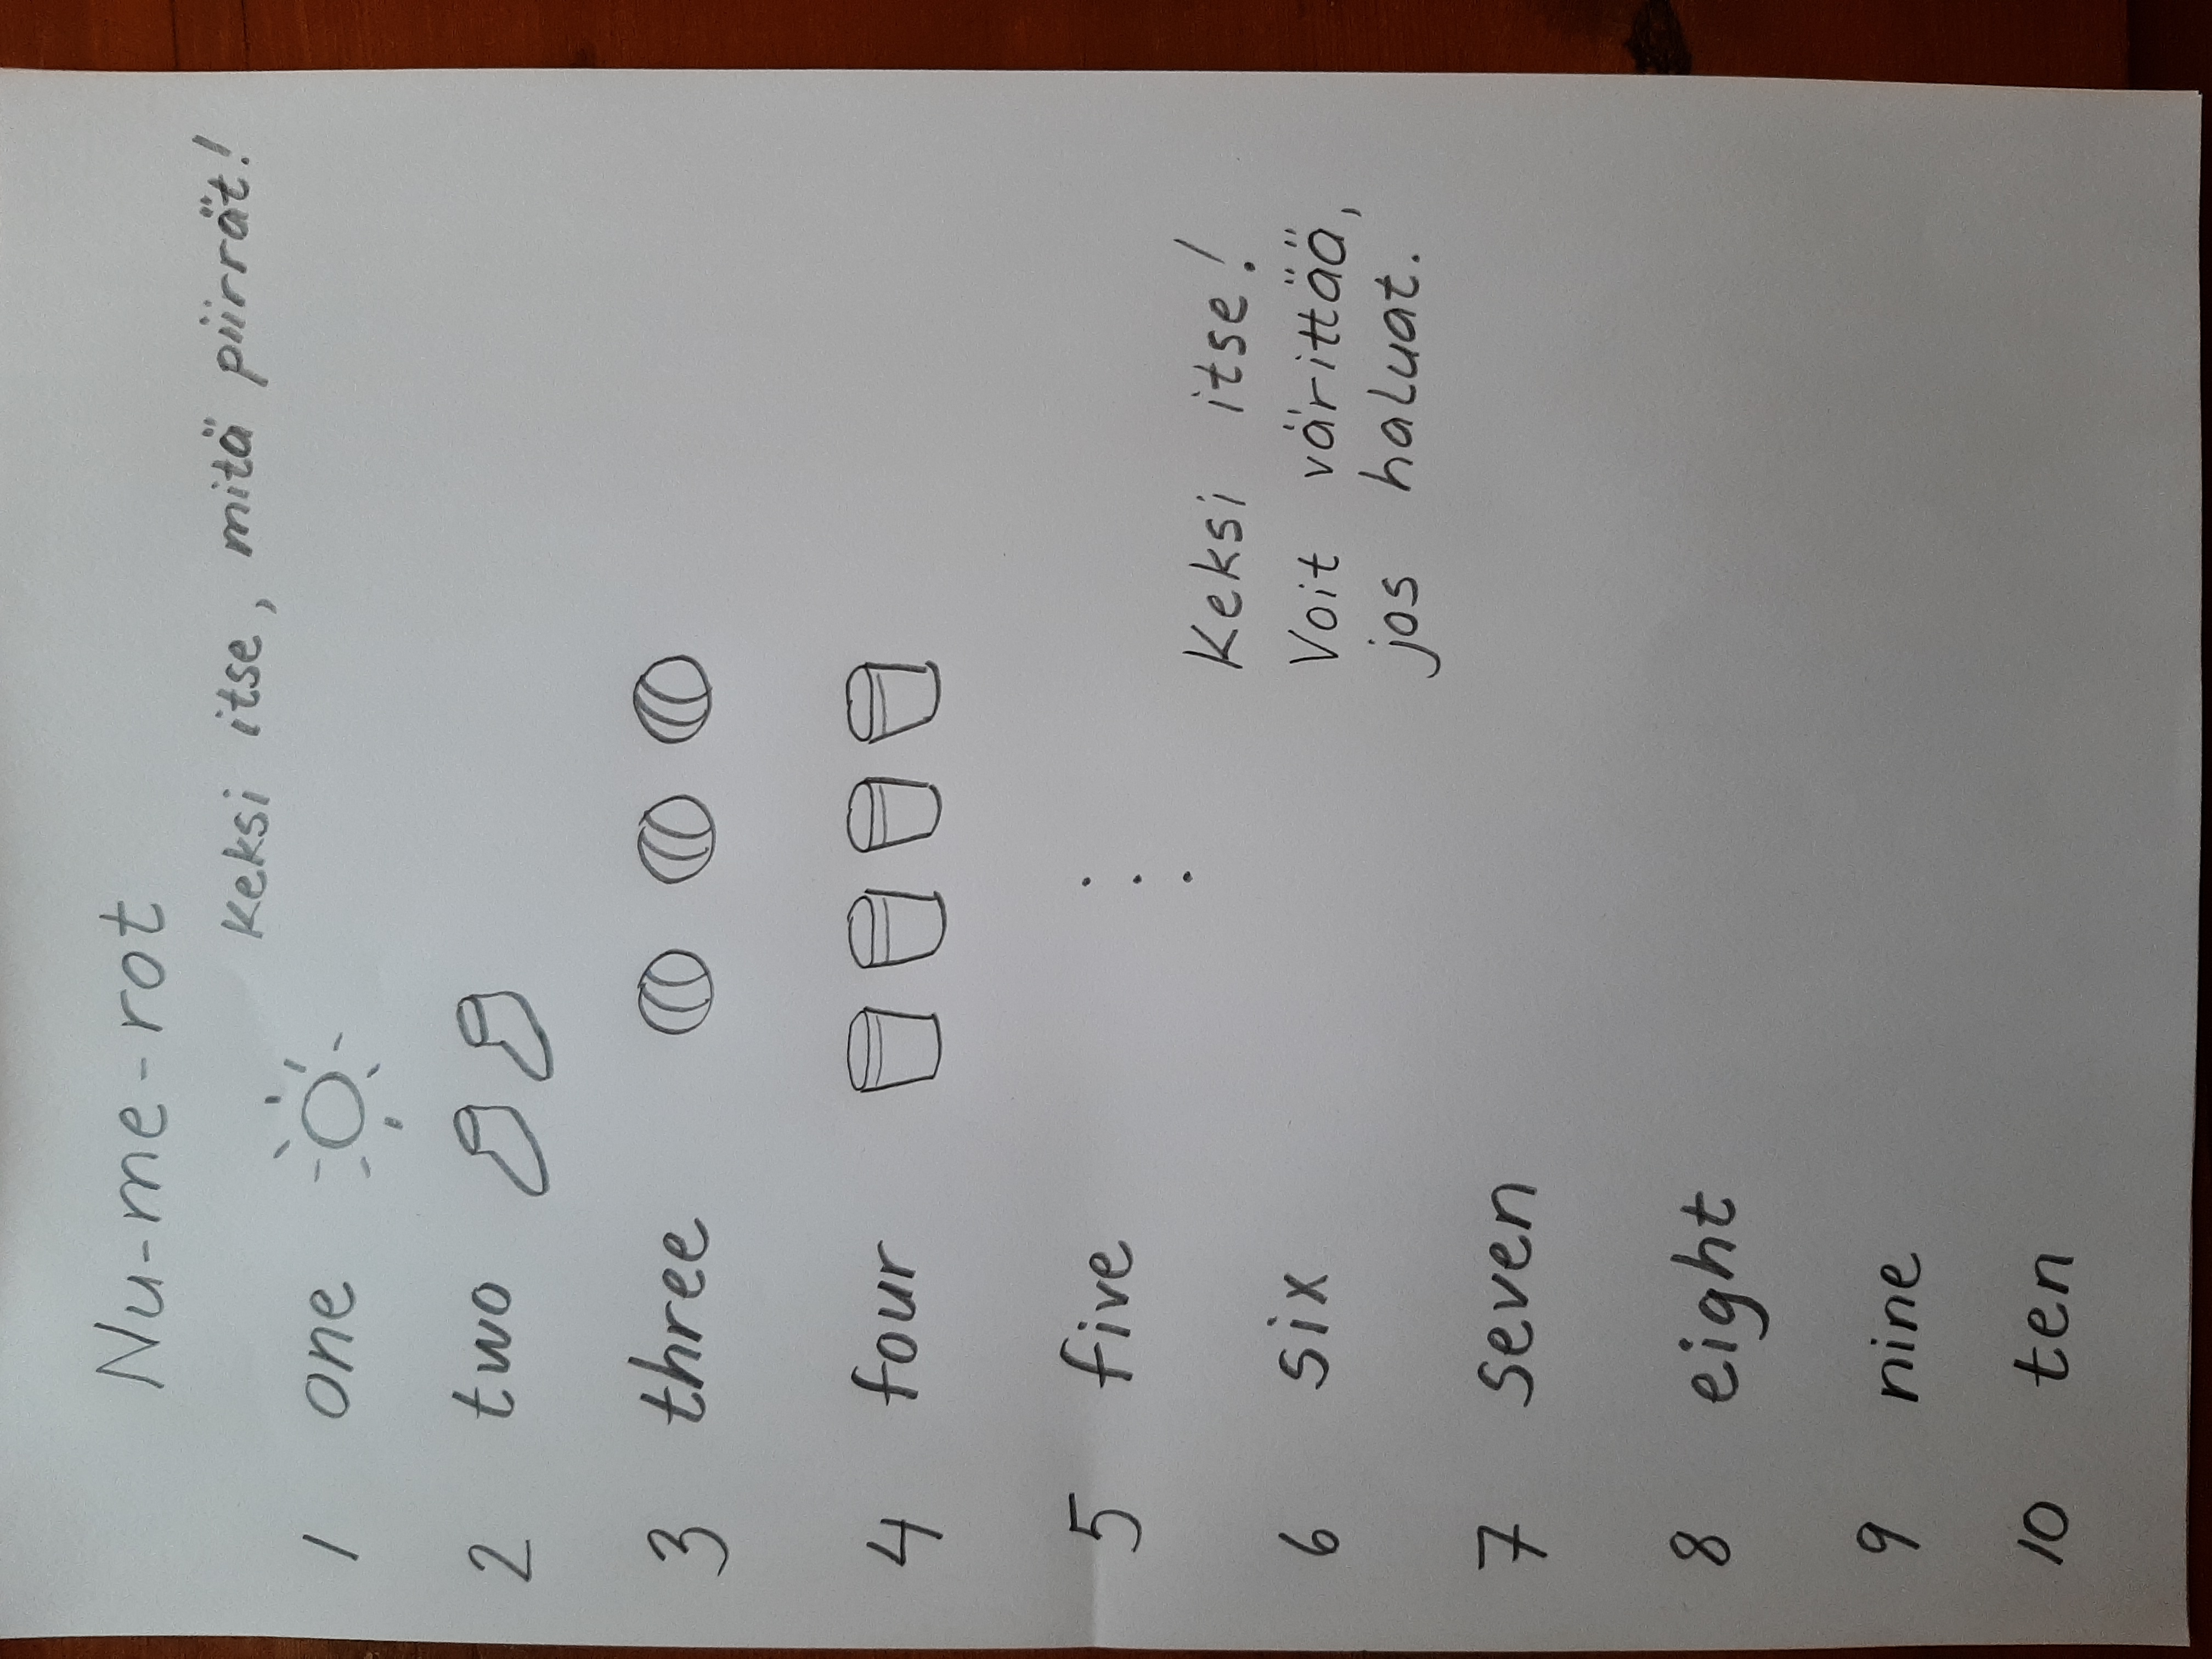 Nu-me-rot
Keksi itse, mitä piirrät!
1 one
2 two
3 three
4 four
5 five
Keksi itse!
6 six
Voit värittää,
jos haluat.
7 seven
8 eight
9 nine
10 ten